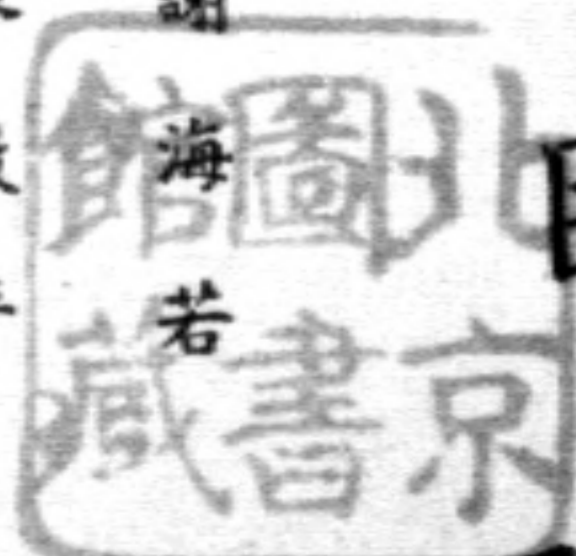 北京
圖書
館藏
海若